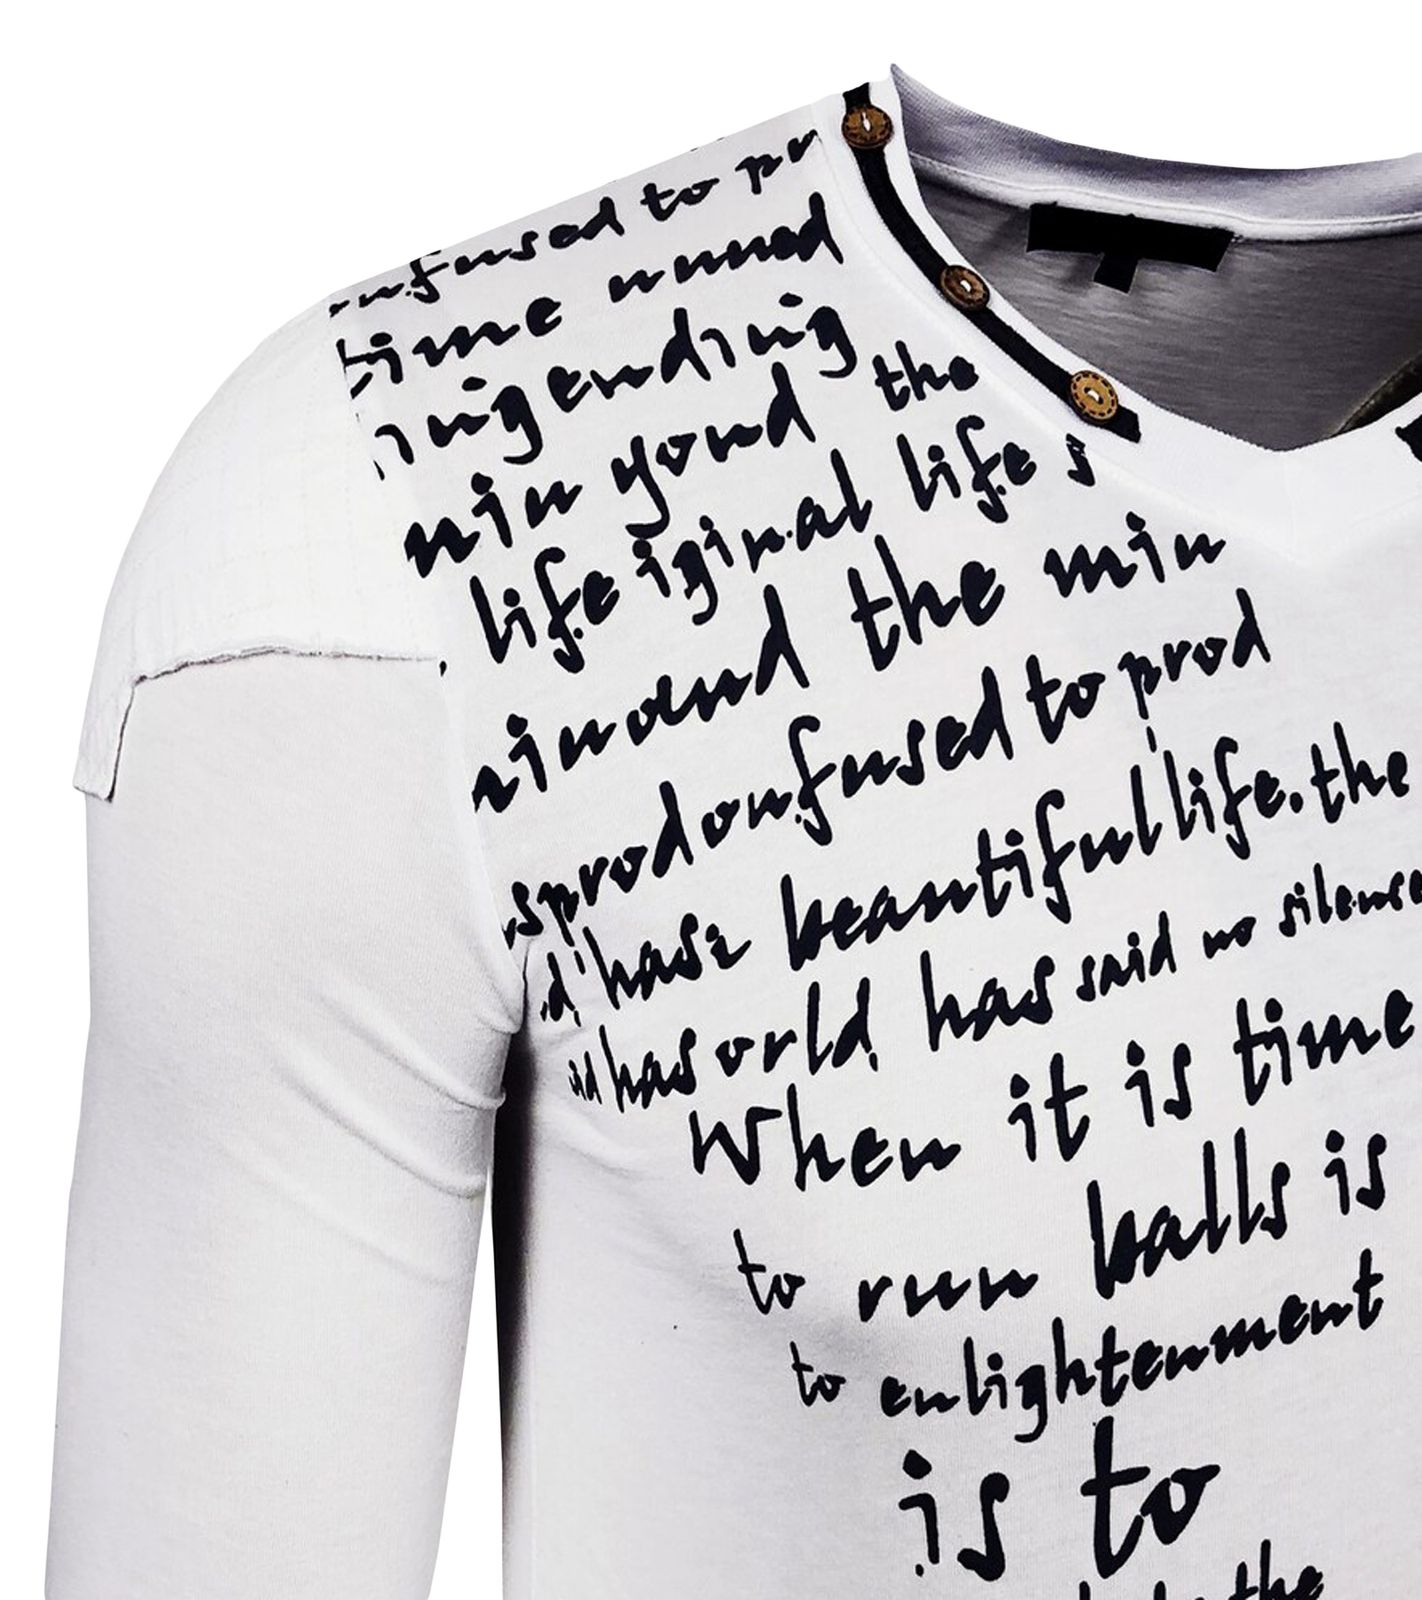 nfused to pr
time nunud
nigending
nin yond the
life iginal life s
ninand the min
sprodonfused to prod
d'hase beautifullife.the
id has orld has said no silense
When it is time
to run balls is
to enlightenment
is to
the